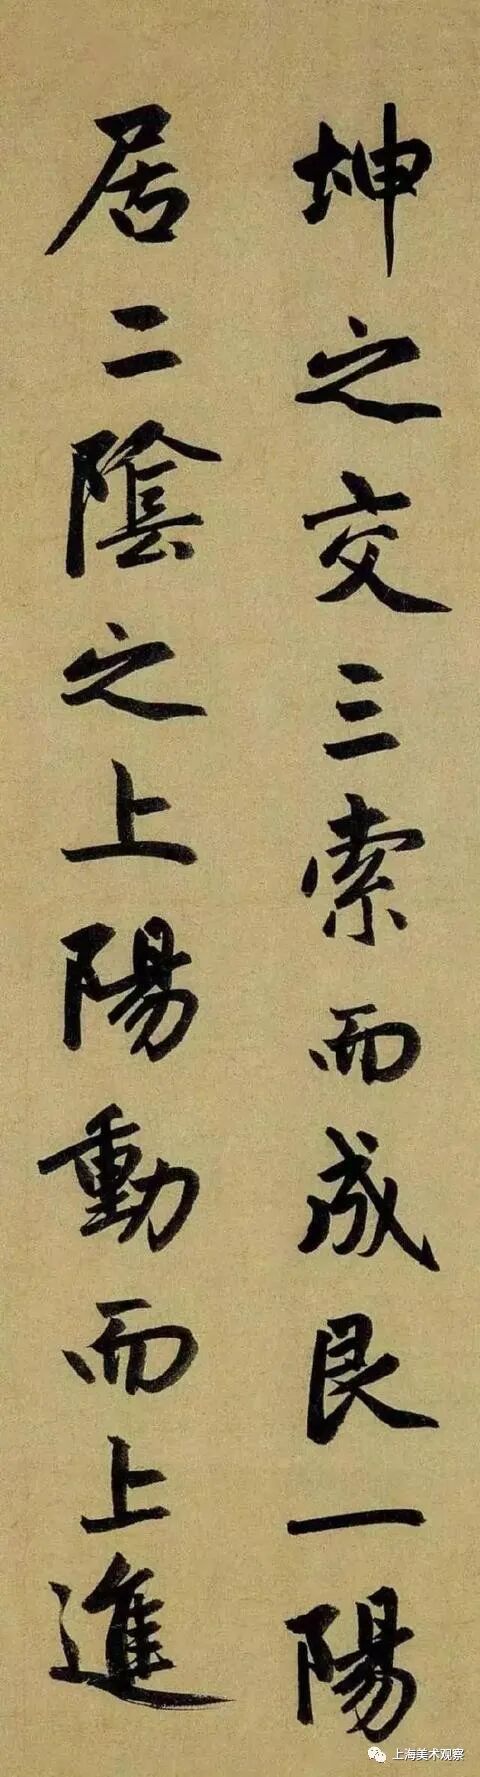 坤之交三索而成艮一陽
居二陰之上陽動而上進
上海美术观察